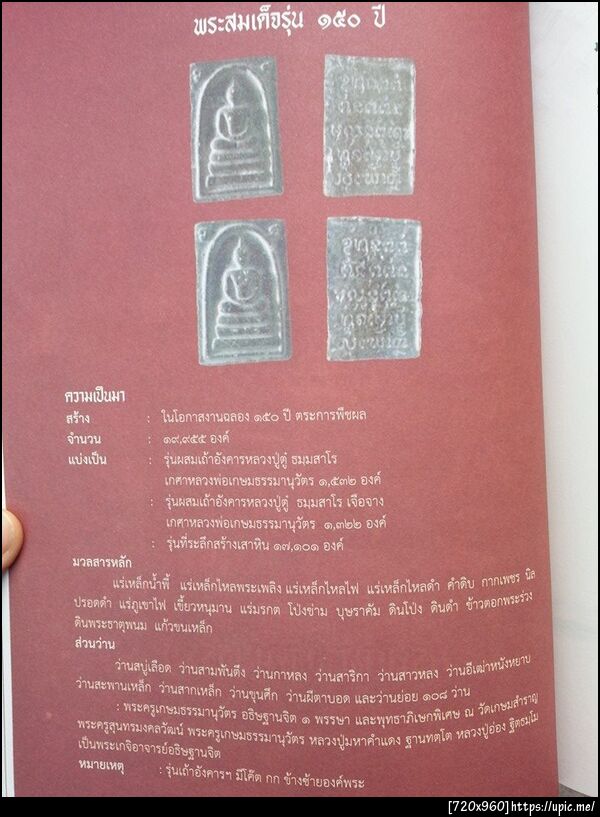 พระสมเด็จรุ่น ๑๕๐ ปี
ความเป็นมา
สร้าง : ในโอกาสงานฉลอง ๑๕๐ ปี ตระการพืชผล
จำนวน : ๑๙,๙๕๕ องค์
แบ่งเป็น : รุ่นผสมเถ้าอังคารหลวงปู่ตู๋ ธมฺมสาโร
เกศาหลวงพ่อเกษมธรรมานุวัตร ๑,๕๓๒ องค์
: รุ่นผสมเถ้าอังคารหลวงปู่ตู๋ ธมฺมสาโร เจือจาง
เกศาหลวงพ่อเกษมธรรมานุวัตร ๑,๓๒๒ องค์
: รุ่นที่ระลึกสร้างเสาหิน ๑๗,๑๐๑ องค์
มวลสารหลัก
แร่เหล็กน้ำพี้ แร่เหล็กไหลพระเพลิง แร่เหล็กไหลไฟ แร่เหล็กไหลดำ คำดิบ กากเพชร นิล
ปรอดดำ แร่ภูเขาไฟ เขี้ยวหนุมาน แร่มรกต โป่งข่าม บุษราคัม ดินโป่ง ดินดำ ข้าวตอกพระร่วง
ดินพระธาตุพนม แก้วขนเหล็ก
ส่วนว่าน
ว่านสบู่เลือด ว่านสามพันตึง ว่านกาหลง ว่านสาริกา ว่านสาวหลง ว่านอีเฒ่าหนังหยาบ
ว่านสะพานเหล็ก ว่านสากเหล็ก ว่านขุนศึก ว่านผีตาบอด และว่านย่อย ๑๐๘ ว่าน
: พระครูเกษมธรรมานุวัตร อธิษฐานจิต ๑ พรรษา และพุทธาภิเษกพิเศษ ณ วัดเกษมสำราญ
พระครูสุนทรมงคลวัฒน์ พระครูเกษมธรรมานุวัตร หลวงปู่มหาคำแดง ฐานทตฺโต หลวงปู่อ่อง ฐิตธมฺโม
เป็นพระเกจิอาจารย์อธิษฐานจิต
หมายเหตุ : รุ่นเถ้าอังคารฯ มีโค๊ต กก ข้างซ้ายองค์พระ
[720x960]https://upic.me/